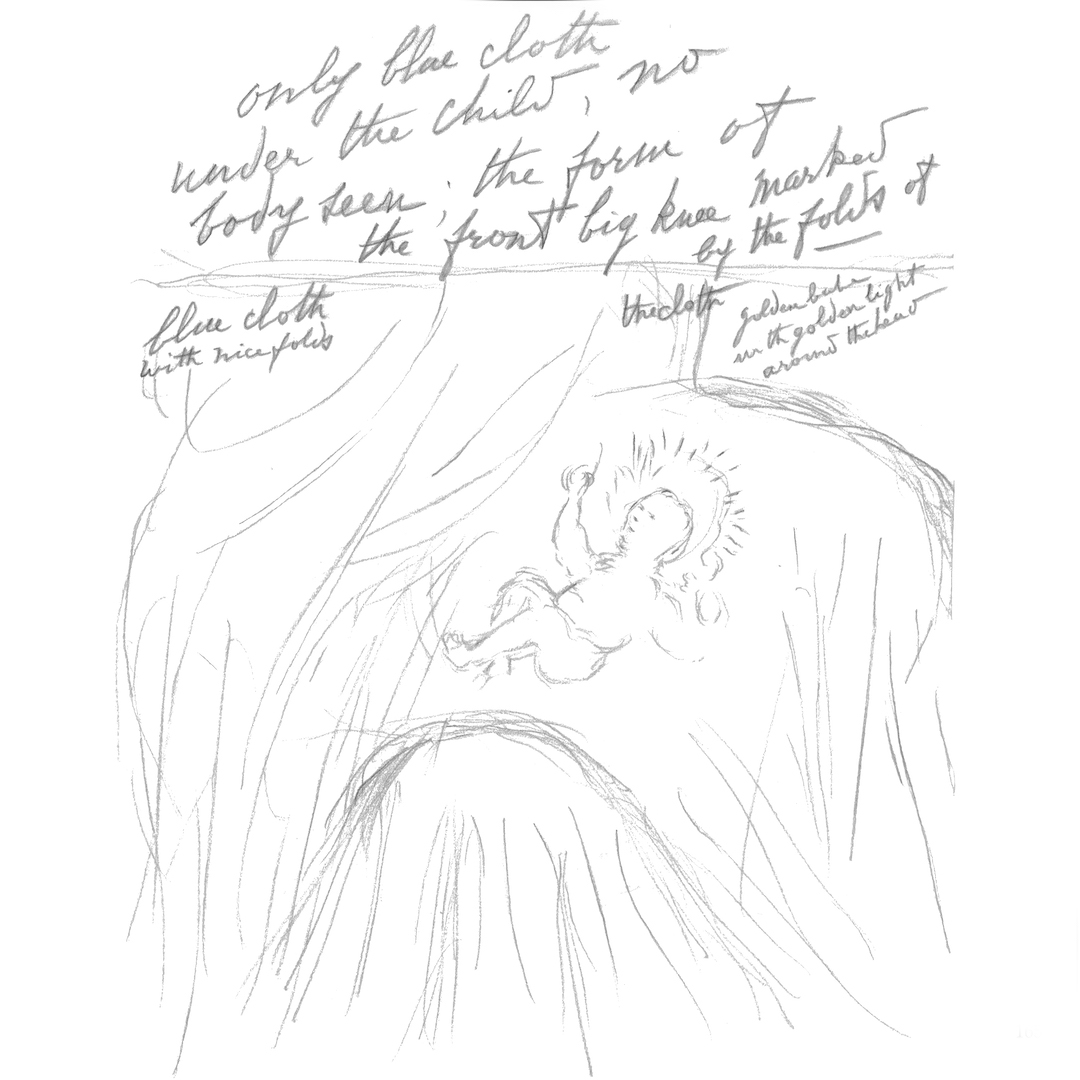 only blue cloth
under the child, no
body seen; the form of
the front big knee marked
by the folds of
the cloth
blue cloth
with nice folds
golden babe
with golden light
around the head